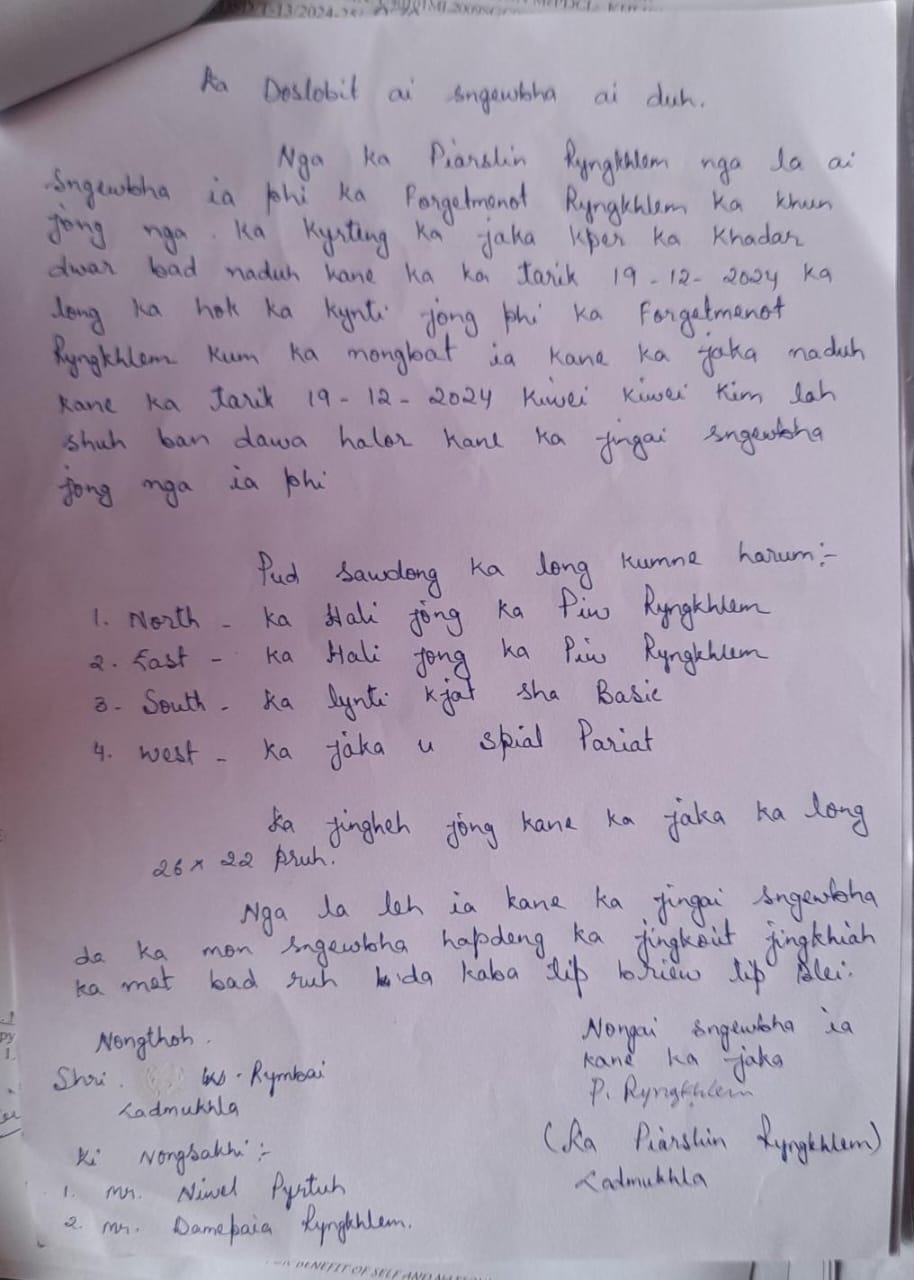 T-13/2024-25
Ka Doslobit ai sngewbha ai duh.
Nga ka Piarslin Ryngkhlem nga la ai
sngewbha ia phi ka Forgetmenot Ryngkhlem ka khun
jong nga. Ka kyrteng ka jaka kper ka khadar
dwar bad naduh kane ka ka tarik 19-12-2024 ka
long ka hok ka kynti jong phi ka Forgetmenot
Ryngkhlem kum ka mongbat ia kane ka jaka naduh
kane ka tarik 19-12-2024 kiwei kiwei kim lah
shuh ban dawa halor kane ka jingai sngewbha
jong nga ia phi
Pud sawdong ka long kumne harum:-
1. North - ka Hali jong ka Piw Ryngkhlem
2. East - ka Hali jong ka Piw Ryngkhlem
3- South - ka lynti kjat sha Basic
4. West - ka jaka u spial Pariat
Ka jingheh jong kane ka jaka ka long
26 x 22 pruh.
Nga la leh ia kane ka jingai sngewbha
da ka mon sngewbha hapdeng ka jingkoit jingkhiah
ka met bad ruh da kaba tip briew tip Blei.
Nongthoh.
Shri. Rymbai
Ladmukhla
Nongai sngewbha ia
kane ka jaka
P. Ryngkhlem
(Ka Piarshin Ryngkhlem)
Ladmukhla
Ki Nongsakhi:-
1. Mr. Niwel Pyrtuh
2. Mr. Damepaia Ryngkhlem.
BENEFIT OF SELF AND